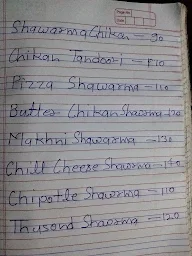 Shawarma Chikan - 90
Chikan Tandoori - 110
Pizza Shawarma - 110
Butter Chikan Shawarma - 120
Makhni Shawarma - 130
Chill Cheese Shawarma - 140
Chipotle Shawarma - 110
Thusond Shawrma - 120